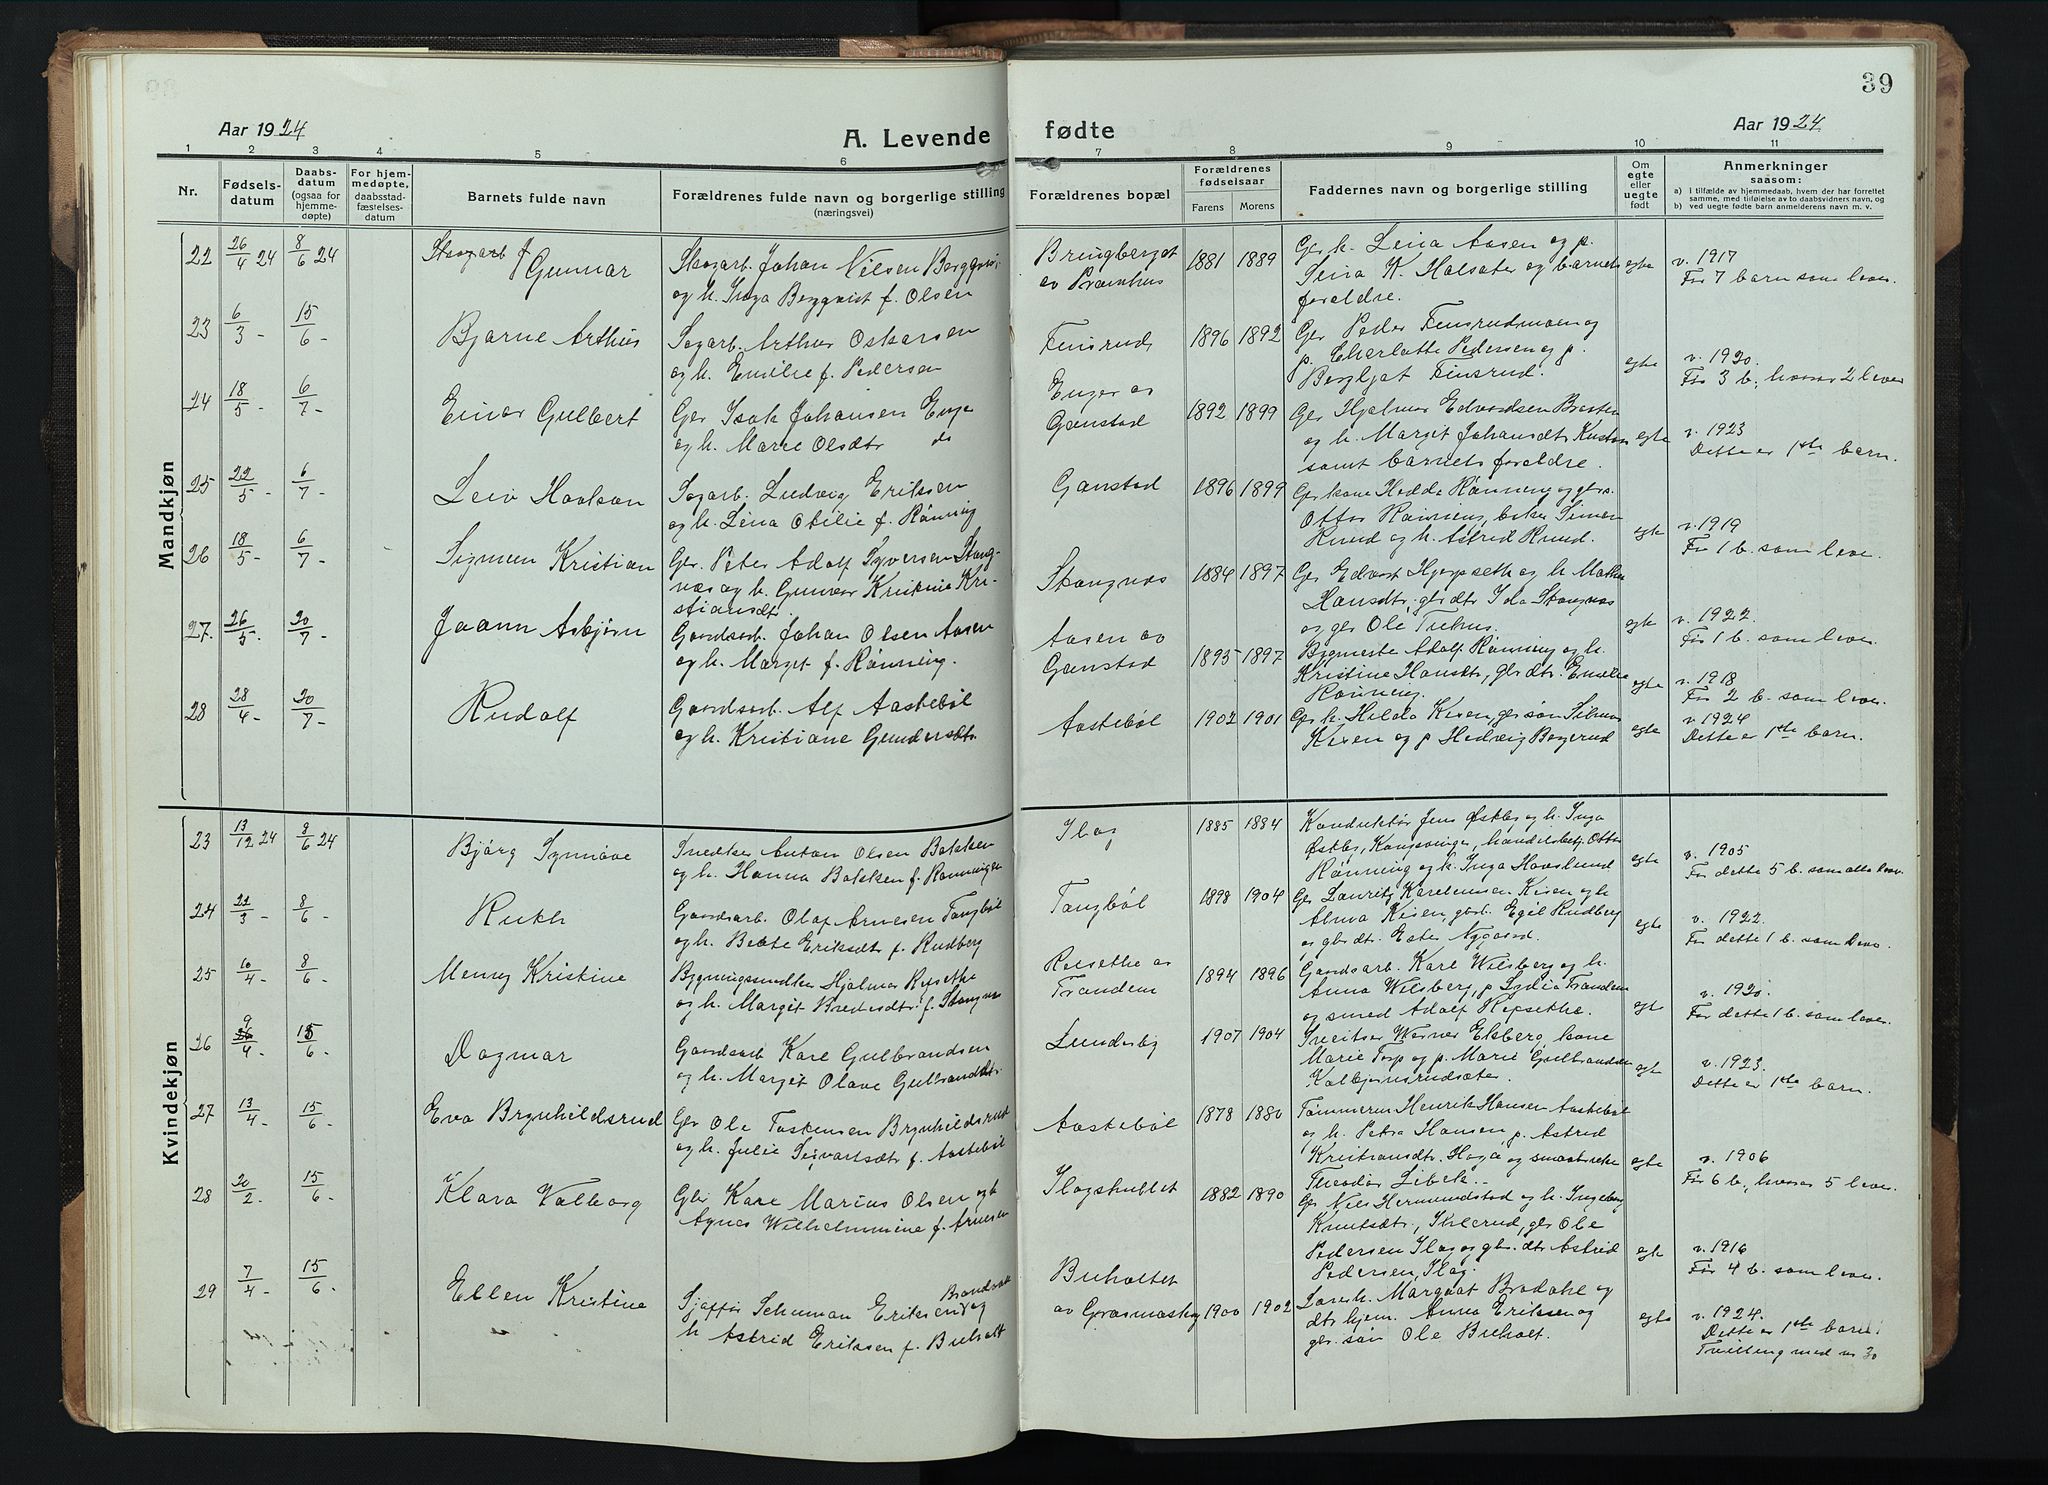 39
Aar 1924
A. Levende fødte
Aar 1924
1 2 3 4 5 6 7 8 9 10 11
Nr.
Fødsels-
datum
Daabs-
datum
(ogsaa for
hjemme-
døpte)
For hjem-
medøpte,
daabsstad-
fæstelses-
datum
Barnets fulde navn
Forældrenes fulde navn og borgerlige stilling
(næringsvei)
Forældrenes bopæl
Forældrenes
fødselsaar
Farens Morens
Faddernes navn og borgerlige stilling
Om
egte
eller
uegte
født
Anmerkninger
saasom:
a) I tilfælde av hjemmedaab, hvem der har forrettet
samme, med tilføielse av to daabsvidners navn, og
b) ved uegte fødte barn anmelderens navn m. v.
Mandkjøn
22 26/4 24 8/6 24 Gunnar
Skogarb. Johan Nilsen
og h. Inga Bergqvist f. Olsen
av
1881 1889
Ger h. Lina Aasen og p.
og barnets
foreldre.
egte
v. 1917
Før 7 barn som lever.
23 6/3 - 15/6 - Bjarne Arthur
Sagarb. Arthur Oskarsen
og h. Emilie f. Pedersen
Finsrud
1896 1892
Ger Peder Finsrudmoen og
p. Charlotte Pedersen og p.
Bergljot Finsrud.
egte
v. 1920
Før 3 b., hvorav 2 lever
24 18/5 - 6/7 - Einar Gulbert
Ger Isak Johansen Enger
og h. Marie Olsdtr do
Enger av
Gaustad
1892 1899
Ger Hjalmar Edvardsen
og h. Margit Johansdtr
samt barnets foreldre.
egte
v. 1923
Dette er 1ste barn.
25 22/5 - 6/7 - Leiv Haakon
Sagarb. Ludvig Eriksen
og h. Lina Otilie f. Rønning
Gaustad
1896 1899
Ger kone Hedda Rønning og gers.
Ottar Rønning, Simen
Ruud og h. Astrid Ruud.
egte
v. 1919
Før 1 b. som lever.
26 18/5 - 6/7 - Sigmun Kristian
Ger. Peter Adolf Syversen Stang-
næs og h. Gunvor Kristine Kri-
stiansdt.
Stangnæs
1884 1897
Ger Edvart Hjerpseth og h. Mathea
Hansdtr., gbr dtr Ida Stangnæs
og ger Ole
egte
v. 1922
Før 1 b. som lever.
27. 26/5 - 20/7 - Joann Asbjørn
Gaardsarb. Johan Olsen Aasen
og h. Margit f. Rønning.
Aasen av
Gaustad
1895 1897
Adolf Rønning og h.
Kristine Hansdtr, gbr dtr. Emilie
Rønning.
egte
v. 1918
Før 2 b. som lever.
28 28/4 - 20/7 - Rudolf
Gaardsarb. Alf Aastebøl
og h. Kristiane Gundersdtr.
Aastebøl
1902 1901
Ger h. Hilda Kisen, ger søn
Kisen og p Hedvig Bogerud
egte
v. 1924
Dette er 1ste barn.
Kvindekjøn
23 13/12 24 8/6 24 Bjørg Synnøve
Snedker Anton Olsen Bakken
og h. Hanna Bakken f.
Ilag
1885 1884
Konduktør Jens Østby og h. Inga
Østby, Kongsvinger, Ottar
Rønning og h. Inga Haveslund
egte
v. 1905
Før dette 5 b. som alle lever.
24 21/3 - 8/6 - Ruth
Gaardsarb. Olaf Arnesen Tangbøl
og h. Beate Eriksdtr f. Rudberg
Tangbøl
1898 1904
Ger Lauritz Karelinusen Kisen og h
Alma Kisen, Egil Rudberg
og gbr dtr. Ester Nygaard.
egte
v. 1922
Før dette 1 b. som lever.
25 10/4 - 8/6 - Menny Kristine
Bygningssnedker Hjalmar Repsethe
og h. Margit f. Stangnæs
Repsethe av
Trandem
1894 1896
Gaardsarb. Karl Wilsberg og h.
Anna Wilsberg, p Lydia Trandem
og smed Adolf Repsethe.
egte
v. 1920.
Før dette 1 b. som lever.
26 9/4 - 15/6 - Dagmar
Gaardsarb Karl Gulbrandsen
og h. Margit Olave Gulbrandsdtr
Lunderby
1907 1904
Sveitser Werner Ekberg, kone
Marie Torp og p. Marie Gulbrandsen
egte
v. 1923.
Dette er 1ste barn.
27 13/4 - 15/6 - Eva Brynhildsrud
Gbr Ole Torkensen Brynhildsrud
og h. Julie Seivartsdtr f. Aastebøl
Aastebøl
1878 1880
Tømmerm Henrik Hansen Aastebøl
og h. Petra Hansen, p. Astrid
Kristiansdtr. Haga og
Theodor Libek.
egte
v. 1906
Før 6 b., hvorav 5 lever.
28 20/2 - 15/6 - Klara Valborg
Gbr Karl Marius Olsen og h
Agnes Wilhelmmine f. Arnesen
Ilagshultet
1882 1890
Ger Nils Hermundstad og h. Ingeborg
Knutsdtr., ger Ole
Pedersen Ilag og gbr. dtr Astrid
Pedersen, Ilag.
egte
v. 1916
Før 4 b. som lever.
29 7/4 - 15/6 - Ellen Kristine
Sjaffør Schuman Eriksen og
h Astrid Eriksen f. Buholt
Buholtet
av
1900 1902
h. Margaat Brodahl og
dtr hjem. Anna Eriksen og
gbr. søn Ole Buholt.
egte
v. 1924.
Dette er 1ste barn.
Tvilling med nr 30